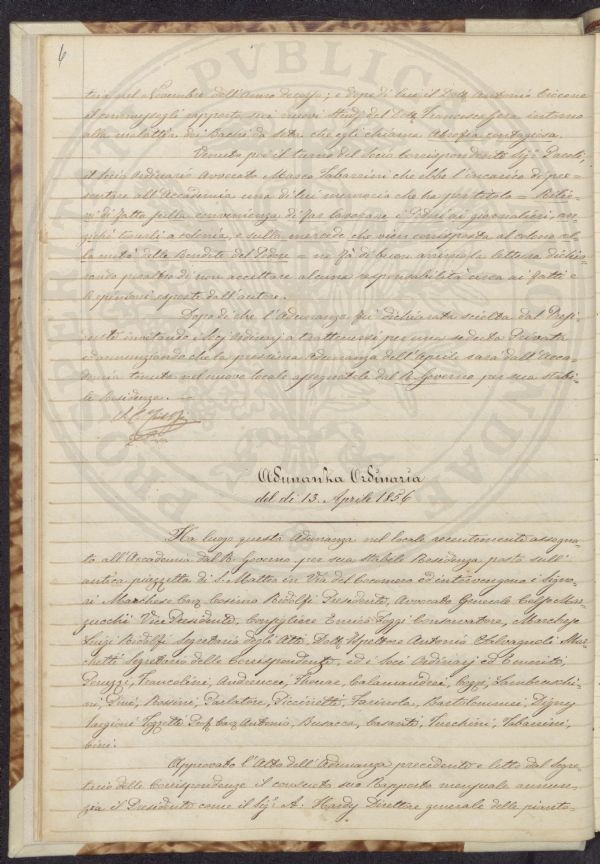 6
tria nel Novembre dell'Anno decorso; e dopo di lui il Dott. Antonio Ciccone
il summo rapporto sui nuovi Studj del Dott. Francesco intorno
alla malattia dei Bachi da Seta che egli chiama Atrofia contagiosa.
Venuto poi il turno del Socio Corrispondente Sig.
il Socio Ordinario Avvocato Marco Tabarrini che ebbe l'incarico di pre-
sentare all'Accademia una di lui memoria che ha per titolo =
di fatto sulla convenienza di far lavorare i Poderi ai giornalieri, an-
ziché tenerli a colonia, e sulla mercede che vien corrisposta al colono col-
la metà delle Rendite del Podere = ne fà di buon animo la lettura dichia-
rando peraltro di non accettare alcuna responsabilità circa ai fatti e
le opinioni esposte dall'autore.
Dopo di che l'Adunanza fu dichiarata sciolta dal Presi-
dente invitando i Socj Ordinarj a trattenersi per una seduta Privata
ed annunziando che la prossima Adunanza dell'Aprile sarà dall'Acca-
demia tenuta nel nuovo locale assegnatole dal R. Governo per sua stabi-
le Residenza.
Adunanza Ordinaria
del dì 13. Aprile 1856
Ha luogo questa Adunanza nel locale recentemente assegna-
to all'Accademia dal R. Governo per sua stabile Residenza posto sull'
antica piazzetta di S. Matteo in Via del Cocomero ed intervengono i Signo-
ri Marchese Cav. Cosimo Ridolfi Presidente, Avvocato Generale Celso Mar-
zucchi Vice Presidente, Consigliere Enrico Poggi Conservatore, Marchese
Luigi Ridolfi Segretario degli Atti, Dott. Ispettore Antonio Salvagnoli Mar-
chetti Segretario delle Corrispondenze, ed i Soci Ordinarj ed Emeriti,
Peruzzi, Francolini, Andreucci, Thouar, Calamandrei, Cozzi, Lambruschi-
ni, Dini, Rossini, Parlatore, Piccinetti, Farinola, Bartolommei, Digny
Targioni Tozzetti Prof. Cav. Antonio, Busacca, Casanti, Turchini, Tabarrini,
Cini.
Approvato l'Atto dell'Adunanza precedente e letto dal Segre-
tario delle Corrispondenze il consueto suo Rapporto mensuale annun-
zia il Presidente come il Sig. A. Hardy Direttore generale delle pianta-